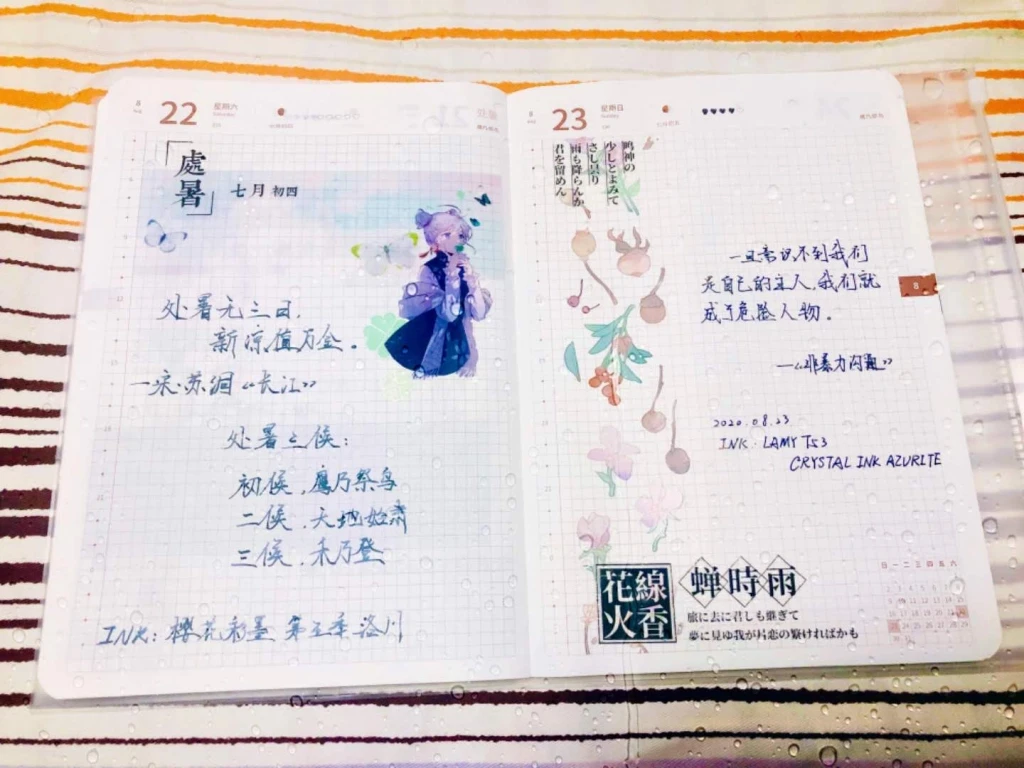 8
22
星期六
「處暑」
七月 初四
处暑无三日,
新凉值万金。
一宋·苏泂《长江》
处暑三侯:
初侯,鹰乃祭鸟
二侯,天地始肃
三侯,禾乃登
INK: 樱花彩墨 第五季 洛川
8
23
星期日
鸣神の
少しとよみて
さし曇り
雨も降らんか
君を留めん
一旦意识不到我们
是自己的主人,我们就
成了危险人物。
—《非暴力沟通》
2020.08.23
INK. LAMY T53
CRYSTAL INK AZURITE
8
花線
火香
蝉時雨
旅に去に君しも継ぎて
夢に見ゆ我が片恋の繁ければかも
日 一 二 三 四 五 六